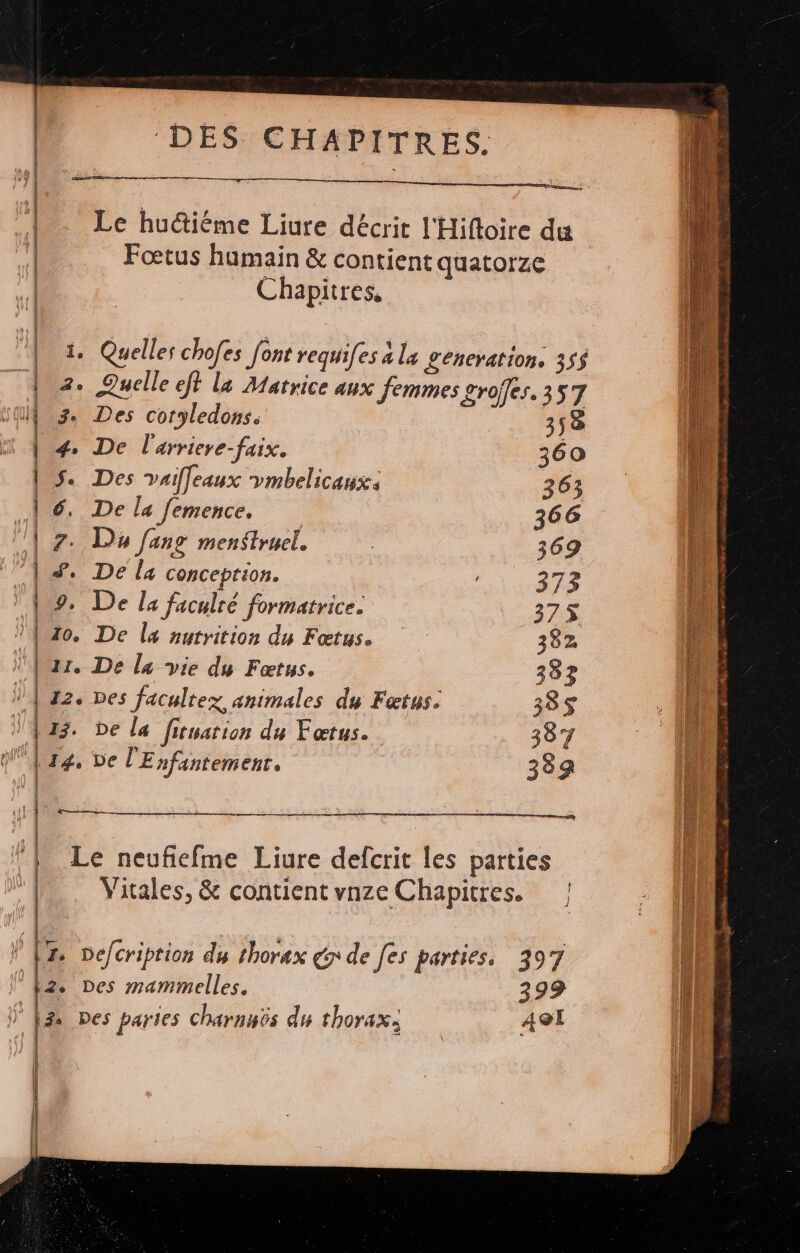 DES CHAPITRES.
Le huctiéme Liure décrit l'Hiſtoire du
Fœtus humain & contient quatorze
Chapitres.
1. Quelles choſes ſont requiſes à la generation. 355
2. Quelle eſt la Matrice aux femmes groſſes. 357
3. Des cotyledons. 358
4. De l'arriere-faix. 360
5. Des vaiſſeaux vmbelicaux. 363
6. De la ſemence. 366
7. Du ſang menſtruel. 369
8. De la conception. 373
9. De la faculté formatrice. 375
10. De la nutrition du Fœtus. 382
11. De la vie du Fœtus. 383
12. Des facultez animales du Fœtus. 385
13. De la ſituation du Fœtus. 387
14. De l'Enfantement. 389
Le neufieſme Liure deſcrit les parties
Vitales, & contient vnze Chapitres.
1. Deſcription du thorax & de ſes parties. 397
2. Des mammelles. 399
3. Des paries charnuës du thorax. 401